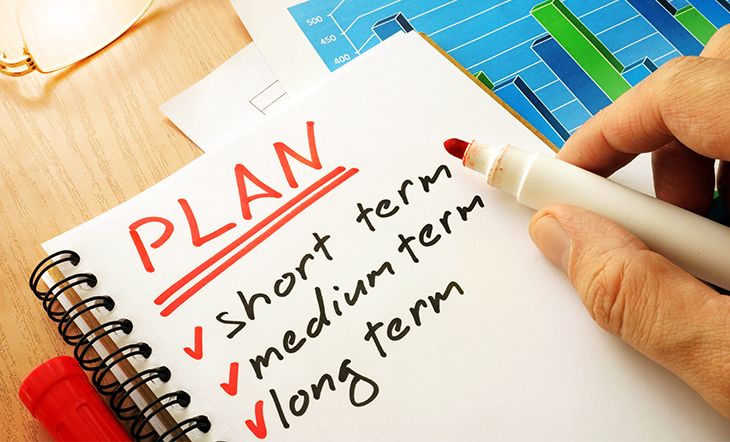 500
450
400
PLAN
✓ short term
✓ medium term
✓ long term